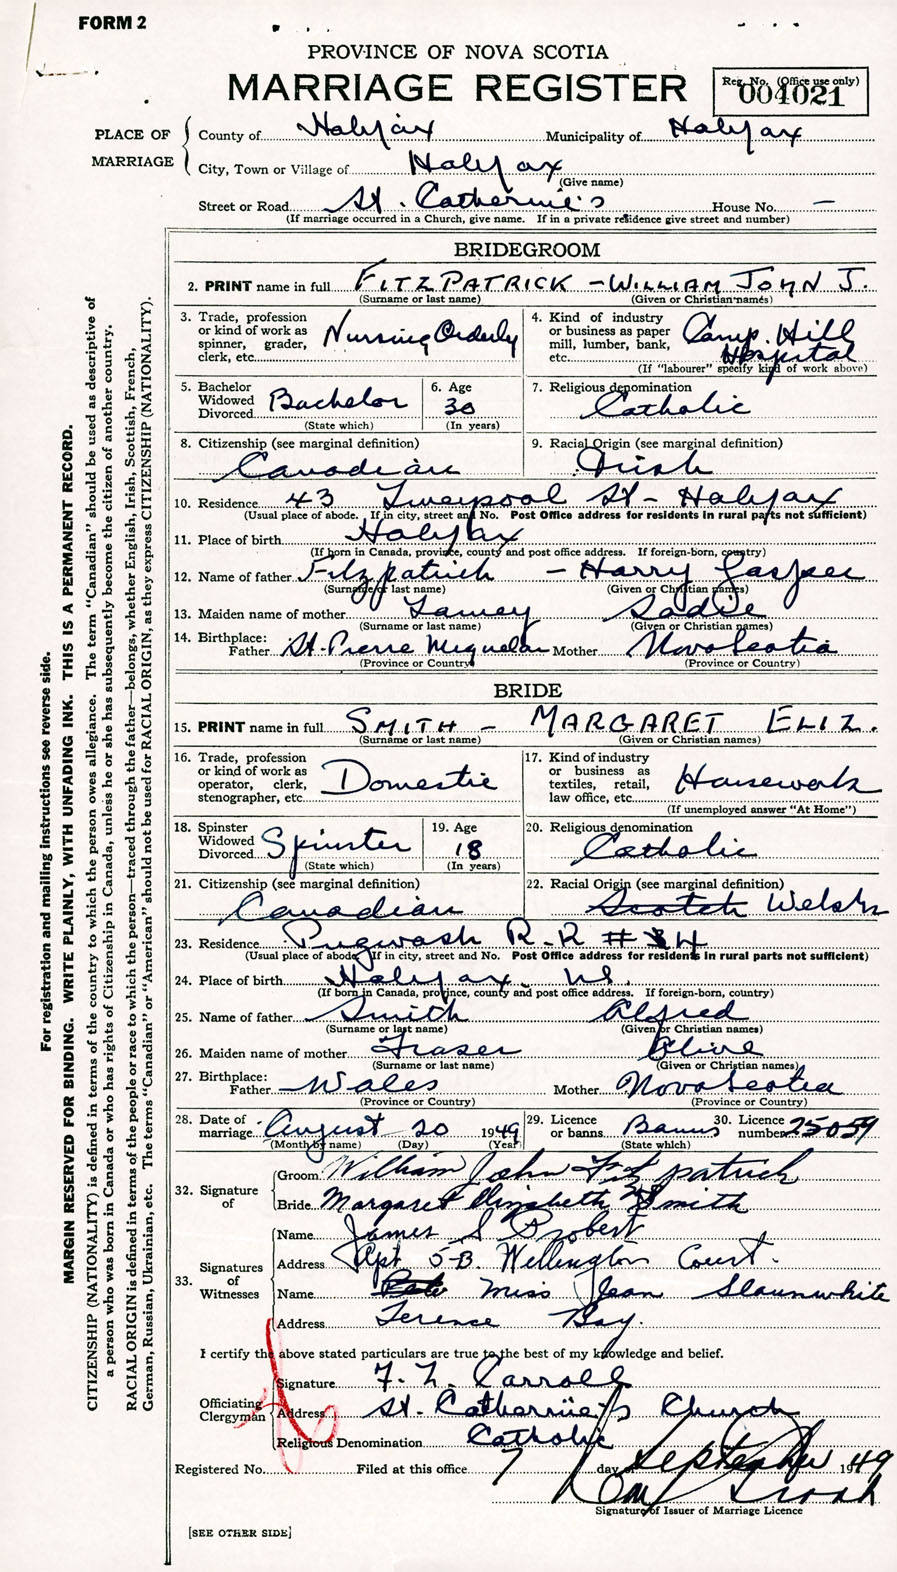 FORM 2
PROVINCE OF NOVA SCOTIA
MARRIAGE REGISTER
Reg. No. (Office use only)
004021
PLACE OF MARRIAGE
County of Halifax Municipality of Halifax
City, Town or Village of Halifax
(Give name)
Street or Road St. Catherine's House No. —
(If marriage occurred in a Church, give name. If in a private residence give street and number)
BRIDEGROOM
2. PRINT name in full FITZPATRICK - WILLIAM JOHN J.
(Surname or last name) (Given or Christian names)
3. Trade, profession or kind of work as spinner, grader, clerk, etc. Nursing Orderly
4. Kind of industry or business as paper mill, lumber, bank, etc. Camp Hill Hospital
(If "labourer" specify kind of work above)
5. Bachelor Widowed Divorced Bachelor
(State which)
6. Age 30
(In years)
7. Religious denomination Catholic
8. Citizenship (see marginal definition) Canadian
9. Racial Origin (see marginal definition) Irish
10. Residence 43 Liverpool St - Halifax
(Usual place of abode. If in city, street and No. Post Office address for residents in rural parts not sufficient)
11. Place of birth Halifax
(If born in Canada, province, county and post office address. If foreign-born, country)
12. Name of father Fitzpatrick - Harry Jasper
(Surname or last name) (Given or Christian names)
13. Maiden name of mother Lamey Sadie
(Surname or last name) (Given or Christian names)
14. Birthplace: Father St. Pierre Miquelan Mother Nova Scotia
(Province or Country) (Province or Country)
BRIDE
15. PRINT name in full SMITH - MARGARET ELIZ.
(Surname or last name) (Given or Christian names)
16. Trade, profession or kind of work as operator, clerk, stenographer, etc. Domestic
17. Kind of industry or business as textiles, retail, law office, etc. Housework
(If unemployed answer "At Home")
18. Spinster Widowed Divorced Spinster
(State which)
19. Age 18
(In years)
20. Religious denomination Catholic
21. Citizenship (see marginal definition) Canadian
22. Racial Origin (see marginal definition) Scotch Welsh
23. Residence Pugwash R.R # 4
(Usual place of abode. If in city, street and No. Post Office address for residents in rural parts not sufficient)
24. Place of birth Halifax. NS.
(If born in Canada, province, county and post office address. If foreign-born, country)
25. Name of father Smith Alfred
(Surname or last name) (Given or Christian names)
26. Maiden name of mother Fraser Olive
(Surname or last name) (Given or Christian names)
27. Birthplace: Father Wales Mother Nova Scotia
(Province or Country) (Province or Country)
28. Date of marriage August 20 1949
(Month by name) (Day) (Year)
29. Licence or banns Banns
(State which)
30. Licence number 25059
32. Signature of
Groom William John Fitzpatrick
Bride Margaret Elizabeth Smith
33. Signatures of Witnesses
Name James S Probert
Address Apt 5-B. Wellington Court.
Name Miss Jean Slaunwhite
Address Terence Bay.
I certify the above stated particulars are true to the best of my knowledge and belief.
Officiating Clergyman
Signature F. L. Carroll
Address St. Catherine's Church
Religious Denomination Catholic
Registered No. Filed at this office 7 day of September 1949
Signature of Issuer of Marriage Licence
[SEE OTHER SIDE]
For registration and mailing instructions see reverse side.
MARGIN RESERVED FOR BINDING. WRITE PLAINLY, WITH UNFADING INK. THIS IS A PERMANENT RECORD.
CITIZENSHIP (NATIONALITY) is defined in terms of the country to which the person owes allegiance. The term "Canadian" should be used as descriptive of
a person who was born in Canada or who has rights of Citizenship in Canada, unless he or she has subsequently become the citizen of another country.
RACIAL ORIGIN is defined in terms of the people or race to which the person—traced through the father—belongs, whether English, Irish, Scottish, French,
German, Russian, Ukrainian, etc. The terms "Canadian" or "American" should not be used for RACIAL ORIGIN, as they express CITIZENSHIP (NATIONALITY).